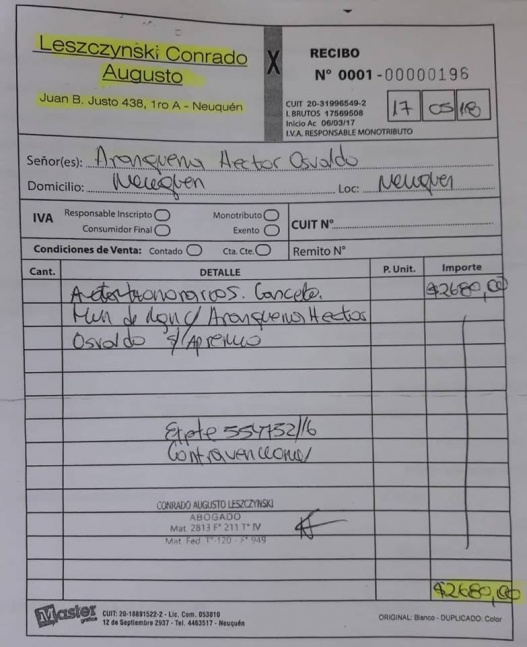 Leszczynski Conrado
Augusto
Juan B. Justo 438, 1ro A - Neuquén
X
RECIBO
N° 0001-00000196
CUIT 20-31996549-2
I. BRUTOS 17569508
Inicio Ac 06/03/17
I.V.A. RESPONSABLE MONOTRIBUTO
17 05 18
Señor(es): Aranquena Hector Osvaldo
Domicilio: Neuquen Loc: Neuquen
IVA Responsable Inscripto Monotributo
Consumidor Final Exento
CUIT N°
Condiciones de Venta: Contado Cta. Cte. Remito N°
Cant. DETALLE P. Unit. Importe
Honorarios. Cancela. $2680,00
Mun de Nqn c/ Aranquena Hector
Osvaldo s/ Apremio
Expte 557752/16
Contravenciones
CONRADO AUGUSTO LESZCZYNSKI
ABOGADO
Mat. 2813 F° 211 T° IV
Mat. Fed. T°-120 - F° 949
$2680,00
Master
gráfica
CUIT: 20-18691522-2 - Lic. Com. 053810
12 de Septiembre 2937 - Tel. 4463517 - Neuquén
ORIGINAL: Blanco - DUPLICADO: Color